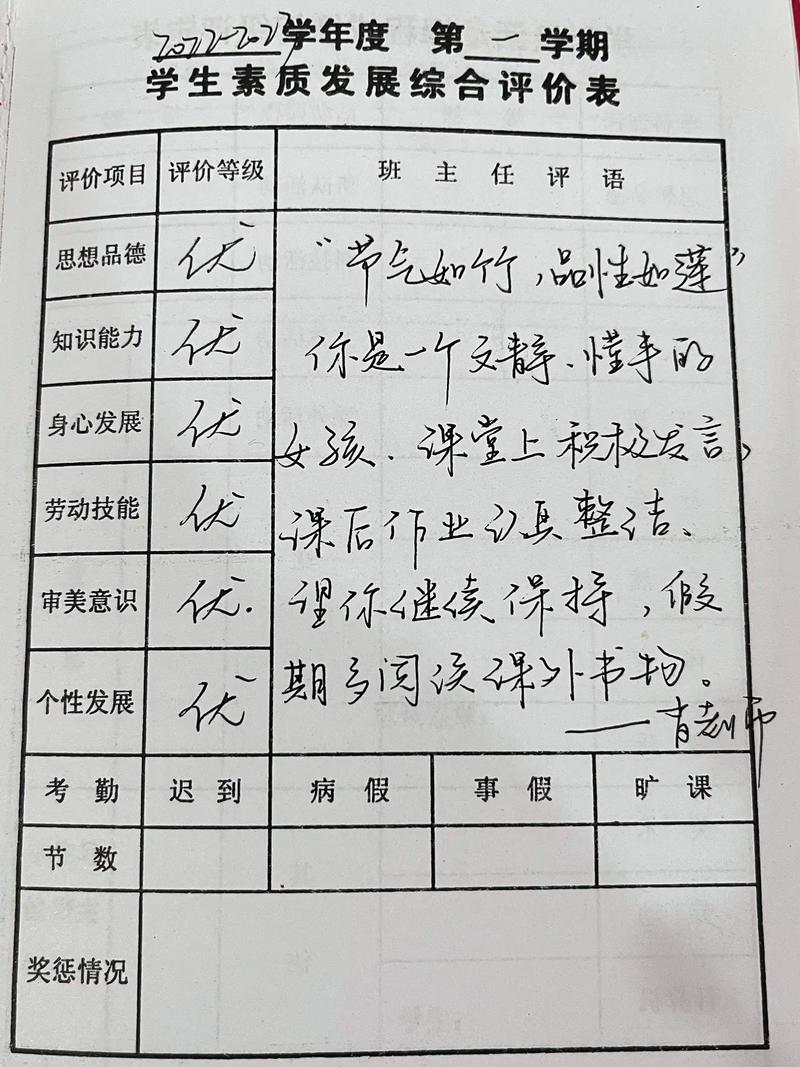 2022-2023学年度 第一学期
学生素质发展综合评价表
评价项目 评价等级 班主任评语
思想品德 优
知识能力 优
身心发展 优
劳动技能 优
审美意识 优.
个性发展 优
“节气如竹，品性如莲”
你是一个文静、懂事的
女孩、课堂上积极发言，
课后作业认真整洁、
望你继续保持，假
期多阅读课外书物。
——肖老师
考勤 迟到 病假 事假 旷课
节数
奖惩情况